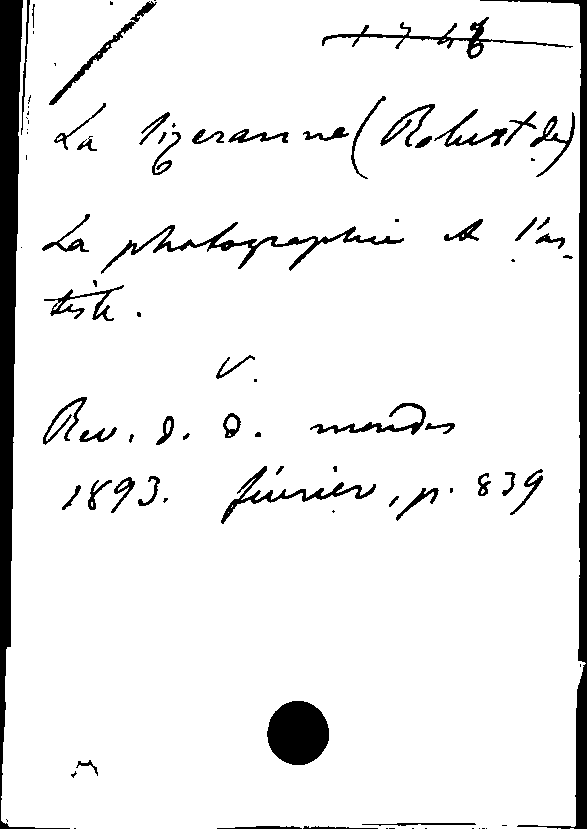 La Sizeranne (Robert de)
La photographie et l'ar-
tiste.
V.
Rev. d. d. mondes
1893. février, p. 839